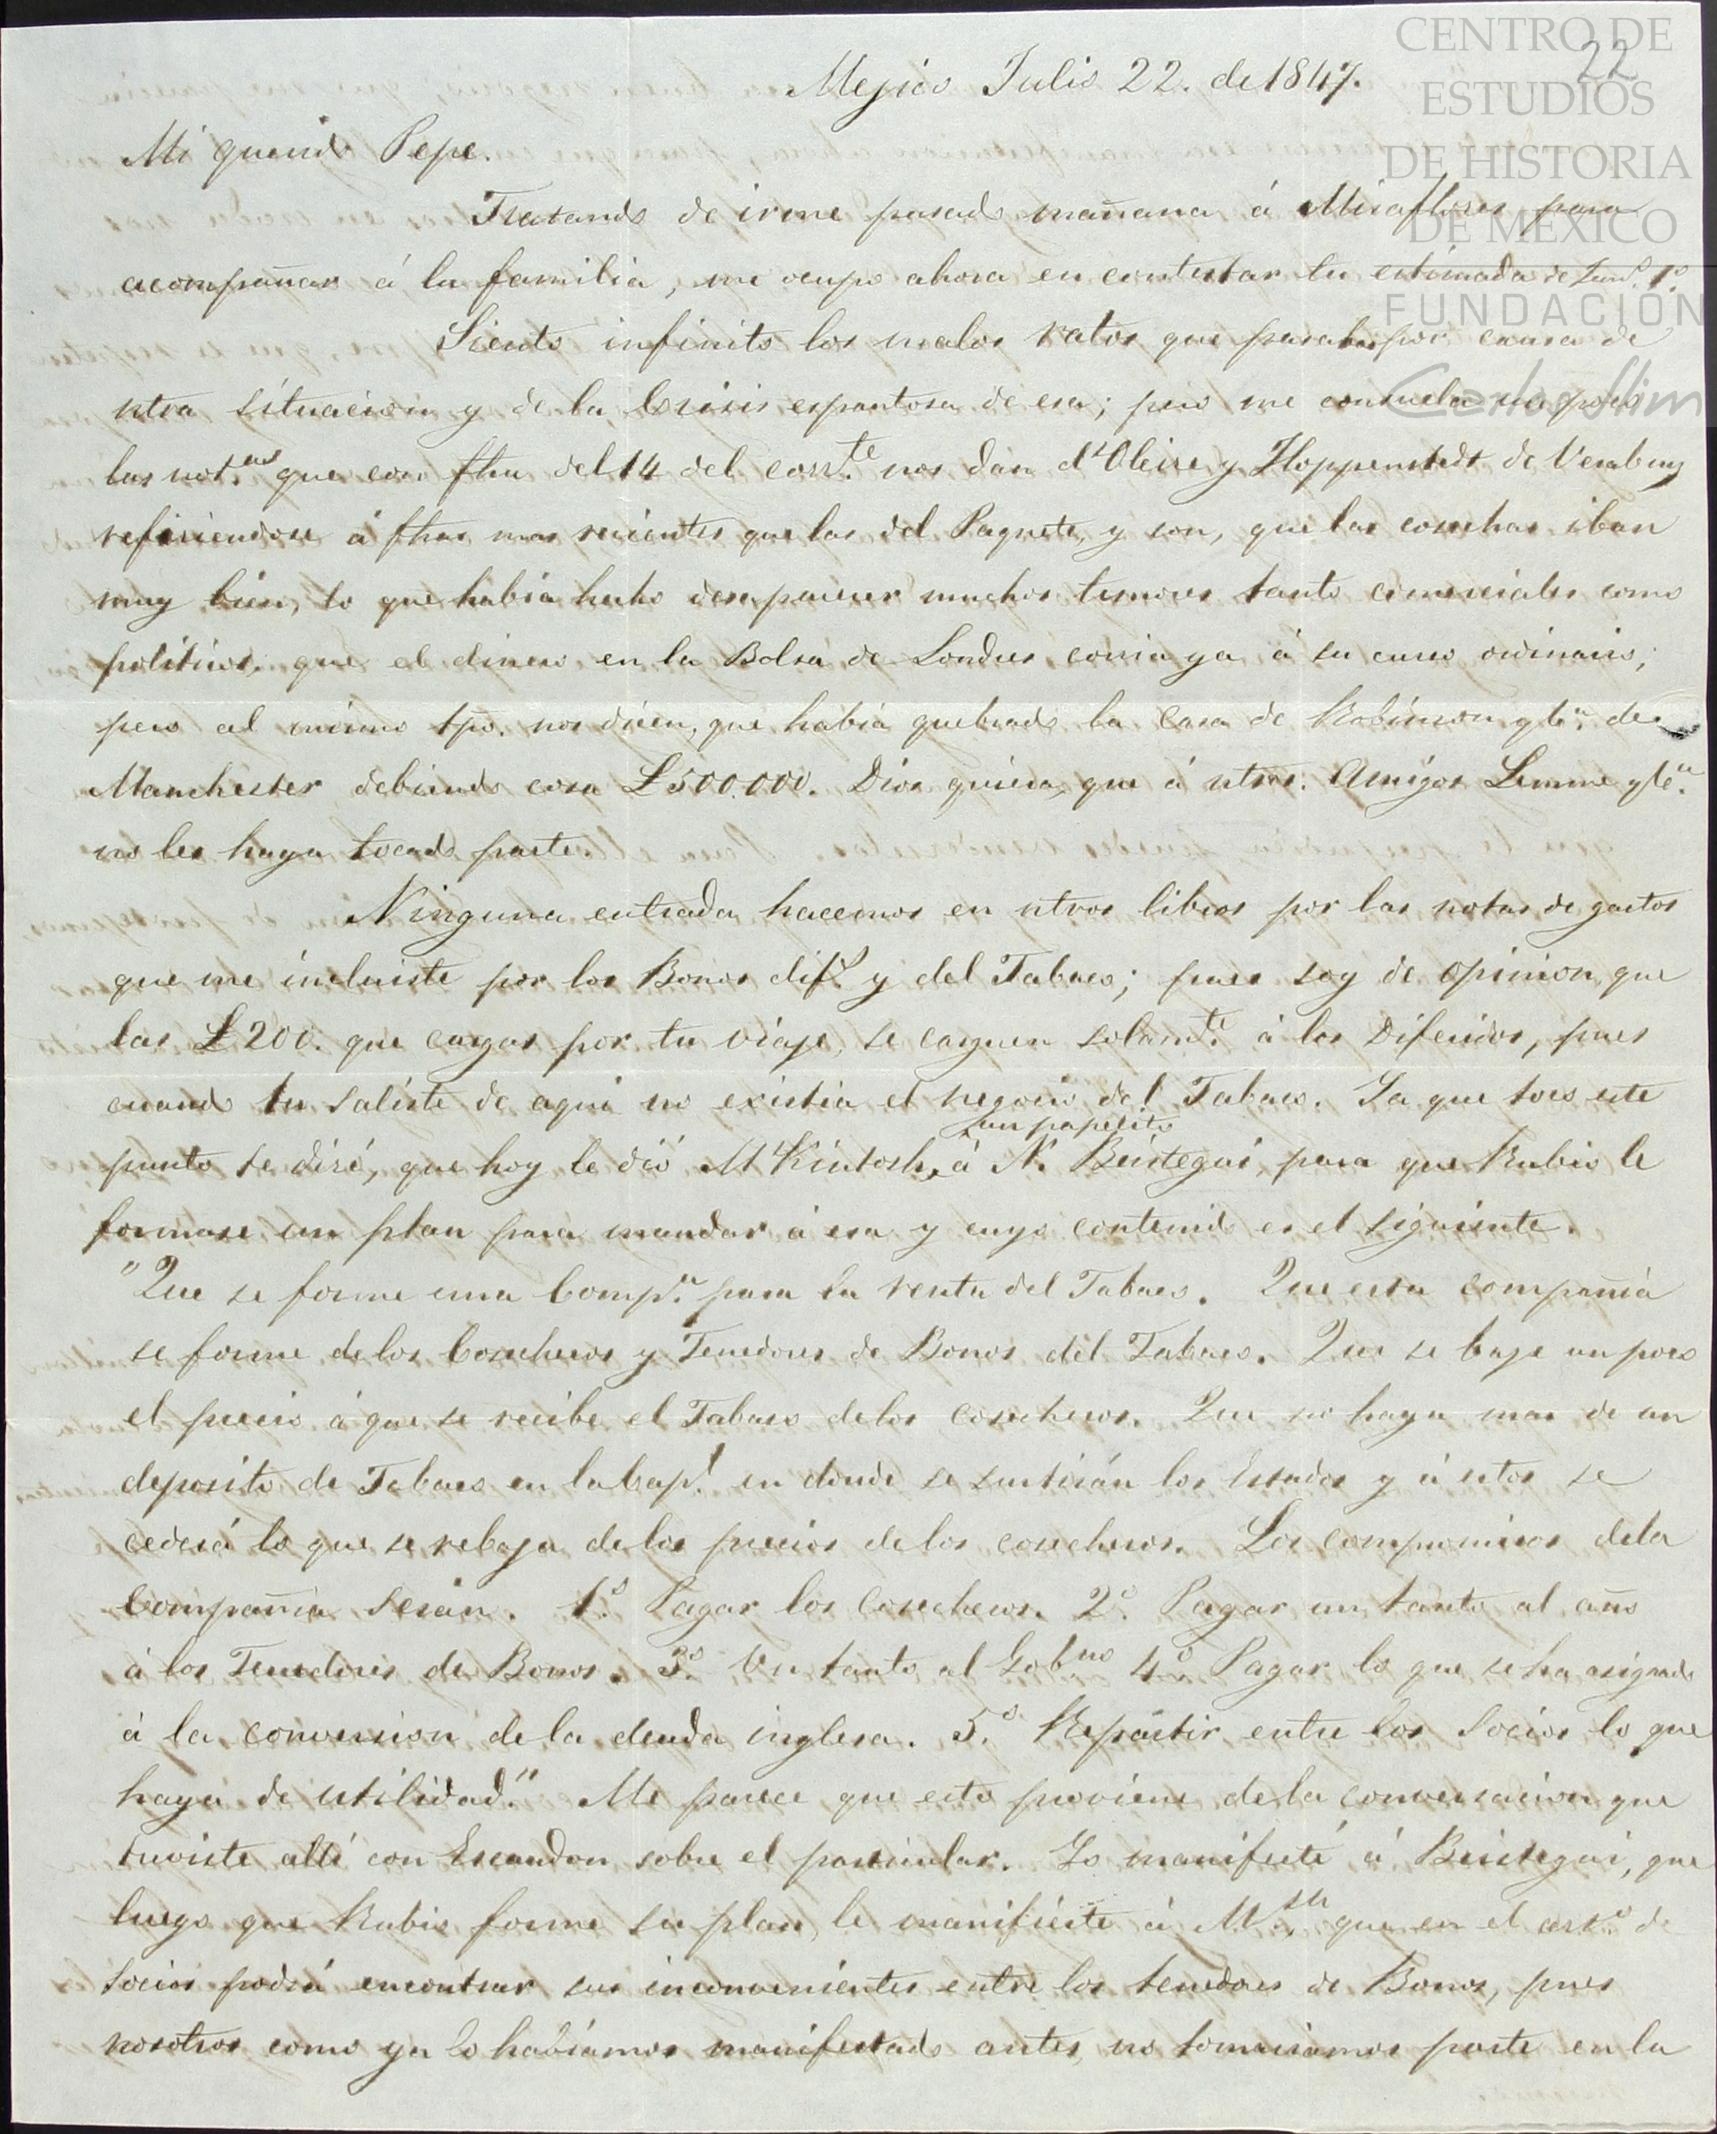 CENTRO DE
ESTUDIOS
DE HISTORIA
DE MEXICO
FUNDACIÓN
Carlos Slim
22
Mejico Julio 22. de 1847.
Mi querido Pepe.
Tratando de irme pasado mañana á Miraflores para
acompañar á la familia, me ocupo ahora en contestar tu estimada de Jun.º 1.º
Siento infinito los malos ratos que pasabas por causa de
ntra situacion y de la Crisis espantosa de esa; pero me consuelan un poco
las not.cias que con fha del 14 del corr.te nos dan d'Oleire y Hoppenstedt de Veracruz
refiriendose á fhas mas recientes que las del Paquete, y son, que las cosechas iban
muy bien, lo que habia hecho desaparecer muchos temores tanto comerciales como
politicos, que el dinero en la Bolsa de Londres corria ya á su curso ordinario;
pero al mismo tpo. nos dicen, que habia quebrado la Casa de Robinson y Ca. de
Manchester debiendo cosa £500.000. Dios quiera, que á ntros. Amigos Lemme y Ca.
no les haya tocado parte.
Ninguna entrada hacemos en ntros libros por las notas de gastos
que me incluiste por los Bonos dif.s y del Tabaco; pues soy de opinion que
las £200. que cargas por tu viaje, se carguen solam.te á los Diferidos, pues
cuando tu saliste de aqui no existia el negocio del Tabaco. Ya que toco este
punto te diré, que hoy le dió McKintosh, un papelito á N. Beistegui, para que Rubio le
formase un plan para mandar á esa y cuyo contenido es el siguiente.
"Que se forme una Comp.a para la renta del Tabaco. Que esta compañia
se forme de los Cosecheros y Tenedores de Bonos del Tabaco. Que se baje un poco
el precio á que se recibe el Tabaco de los cosecheros. Que no haya mas de un
deposito de Tabaco en la Cap.l en donde se surtirán los Estados y á estos se
cederá lo que se rebaja de los precios de los cosecheros. Los compromisos dela
Compañia serán. 1.º Pagar los Cosecheros. 2.º Pagar un tanto al año
á los Tenedores de Bonos. 3.º Un tanto al Gob.no 4.º Pagar lo que se ha asignado
á la conversion de la deuda inglesa. 5.º Repartir entre los Socios lo que
haya de utilidad." Me parece que esto proviene de la conversacion que
tuviste allí con Escandon sobre el particular. Yo manifesté á Beistegui, que
luego que Rubio forme su plan, le manifieste á M.sh que en el de
Socios podrá encontrar sus inconvenientes entre los tenedores de Bonos, pues
nosotros como ya lo habiamos manifestado antes, no tomariamos parte en la